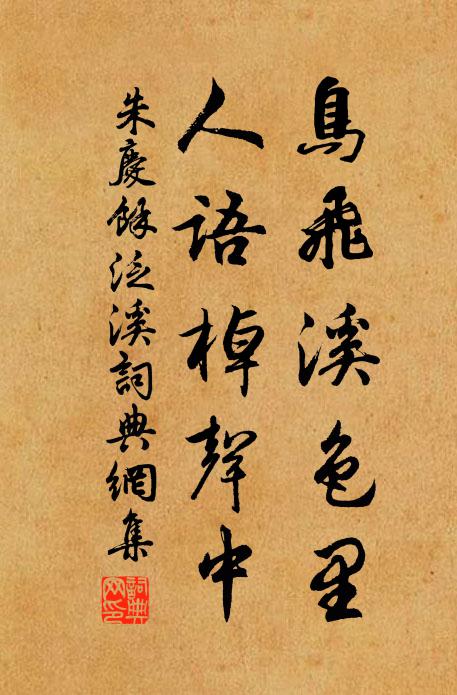 鳥飛溪色里
人語棹聲中
朱慶餘泛溪詞典網集
詞典網印